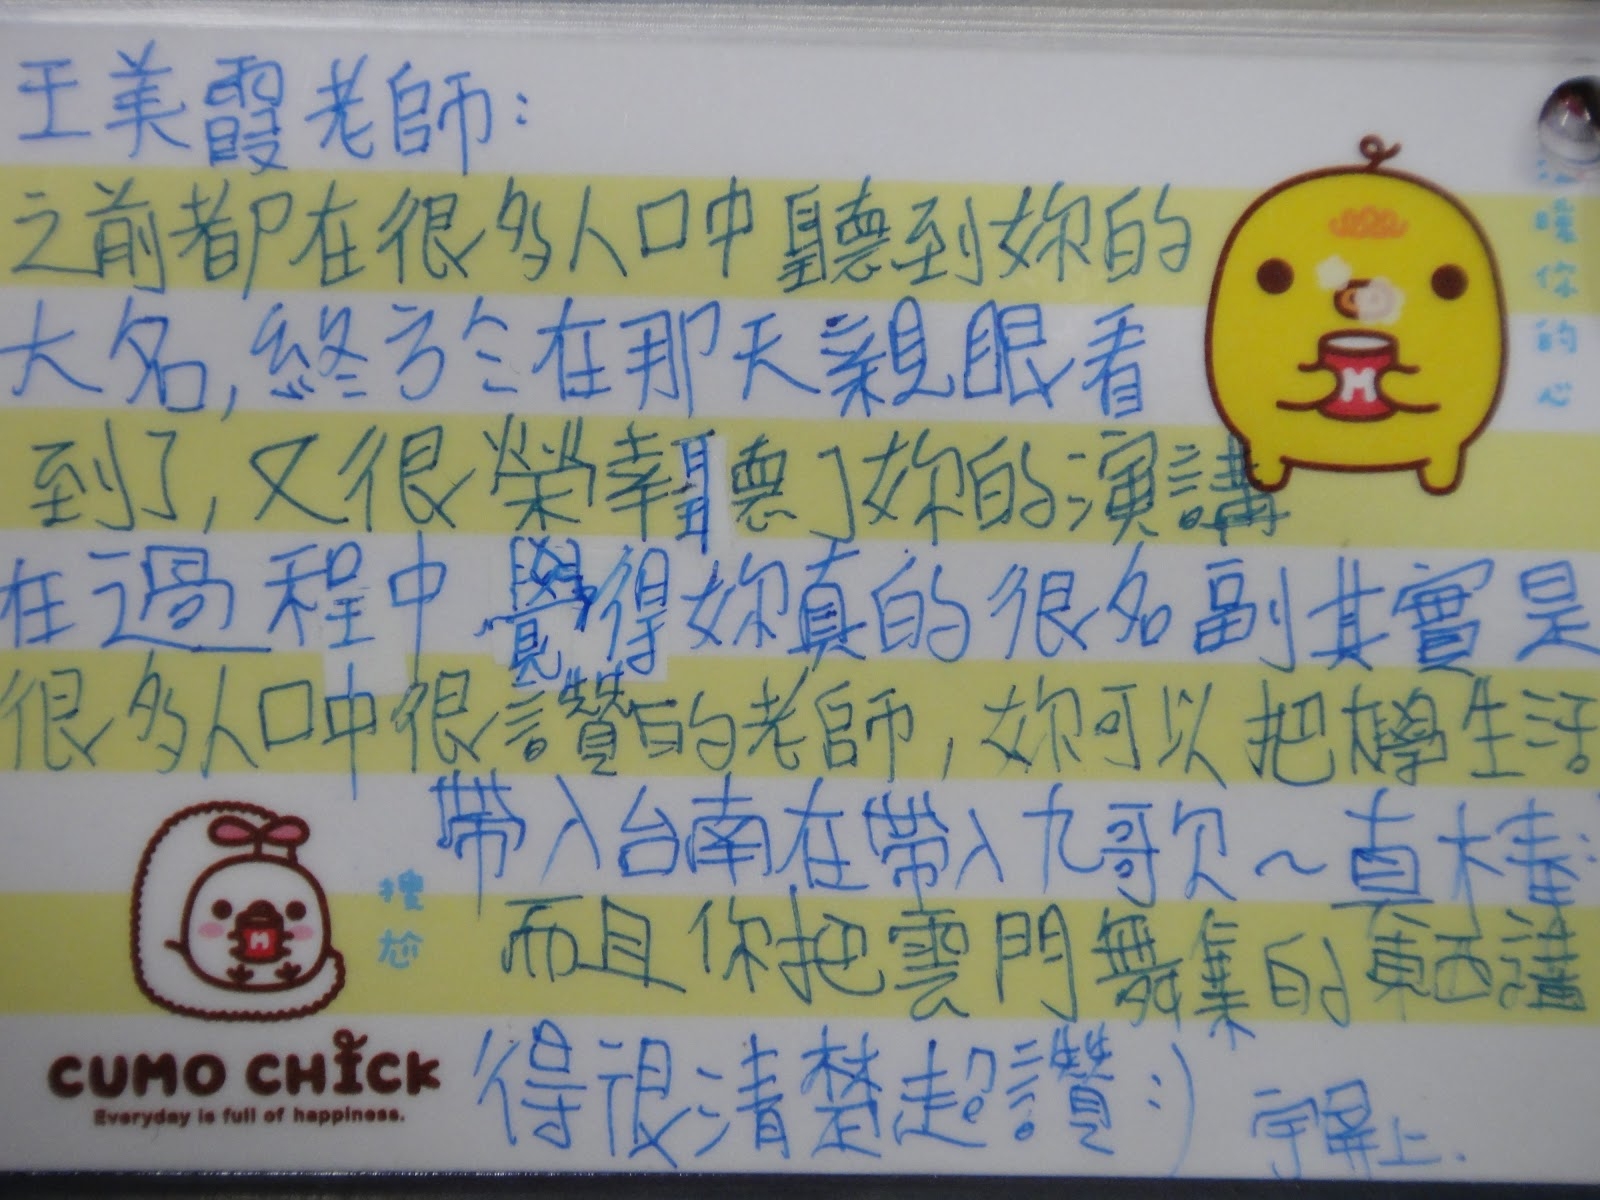 王美霞老師:
之前都在很多人口中聽到妳的
大名,終於在那天親眼看
到了,又很榮幸聽了妳的演講
在過程中覺得妳真的很名副其實是
很多人口中很讚的老師,妳可以把大學生活
帶入台南在帶入九歌~真棒
而且你把雲門舞集的東西講
得很清楚超讚:)
宇屏上.
暖你的心
CUMO CHICK
Everyday is full of happiness.
M
M